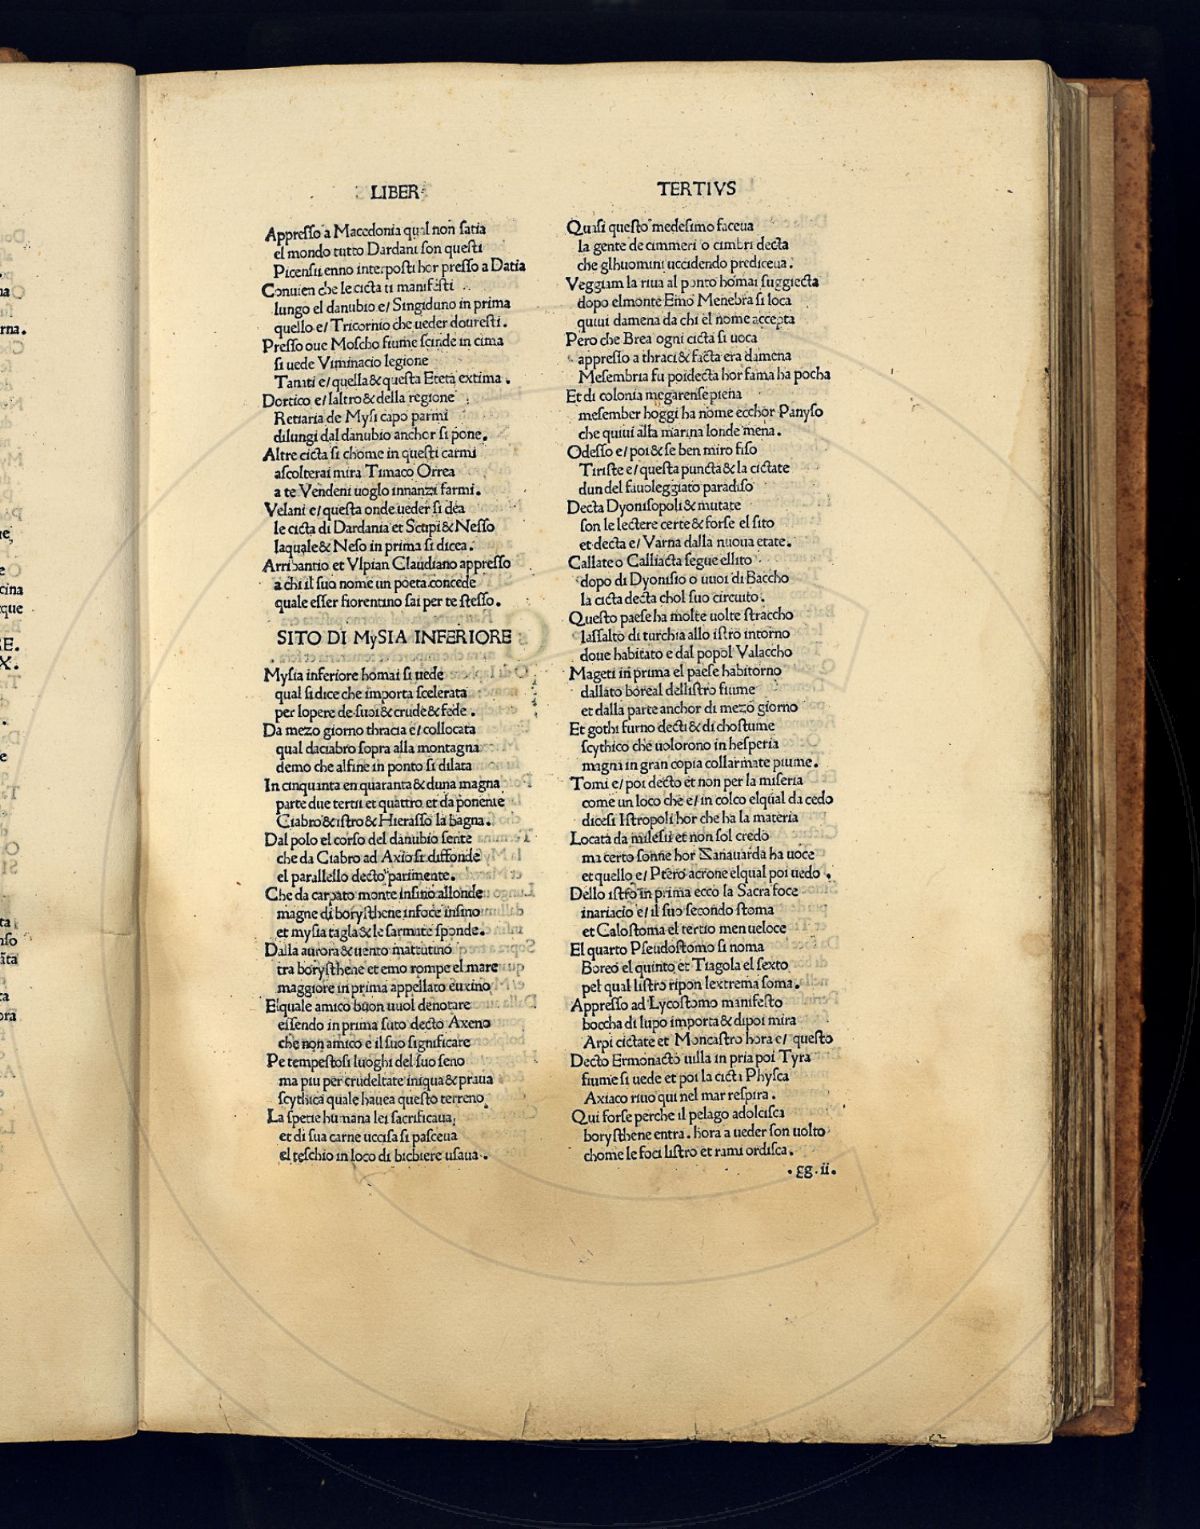 LIBER
Appresso a Macedonia qual non satia
el mondo tutto Dardani son questi
Picensii enno interposti hor presso a Datia
Conuien che le cicta ti manifesti
lungo el danubio e/ Singiduno in prima
quello e/ Tricornio che ueder douresti.
Presso oue Moscho fiume scinde in cima
si uede Viminacio legione
Tanati e/ quella & questa Eteta extima.
Dortico e/ laltro & della regione
Retiaria de Mysi capo parmi
dilungi dal danubio anchor si pone.
Altre cicta si chome in questi carmi
ascolterai mira Timaco Orrea
a te Vendeni uoglo innanzi farmi.
Velani e/ questa onde ueder si dea
le cicta di Dardania et Scupi & Nesso
laquale & Neso in prima si dicea.
Arribantio et Vlpian Claudiano appresso
a chi il suo nome un poeta concede
quale esser fiorentino sai per te stesso.
SITO DI MySIA INFERIORE
Mysia inferiore homai si uede
qual si dice che importa scelerata
per lopere de suoi & crude & fede.
Da mezo giorno thracia e/ collocata
qual daciabro sopra alla montagna
demo che alfine in ponto si dilata
In cinquanta en quaranta & duna magna
parte due tertii et quattro et da ponente
Ciabro & istro & Hierasso la bagna.
Dal polo el corso del danubio sente
che da Ciabro ad Axio si diffonde
el parallello decto parimente.
Che da carpato monte insino allonde
magne di borysthene infoce insino
et mysia tagla & le sarmate sponde.
Dalla aurora & uento mattutino
tra borysthene et emo rompe el mare
maggiore in prima appellato euxino
Elquale amico buon uuol denotare
essendo in prima suto decto Axeno
che non amico e il suo significare
Pe tempestosi luoghi del suo seno
ma piu per crudeltate iniqua & praua
scythica quale hauea questo terreno
La spetie humana lei sacrificaua,
et di sua carne uccisa si pasceua
el teschio in loco di bichiere usaua.
TERTIVS
Quasi questo medesimo faceua
la gente de cimmeri o cimbri decta
che glhuomini uccidendo prediceua.
Veggiam la riua al ponto homai suggiecta
dopo elmonte Emo Menebra si loca
quiui damena da chi el nome accepta
Pero che Brea ogni cicta si uoca
appresso a thraci & facta era damena
Mesembria fu poidecta hor fama ha pocha
Et di colonia megarense piena
mesember hoggi ha nome ecchor Panyso
che quiui alla marina londe mena.
Odesso e/ poi & se ben miro fiso
Tiriste e/ questa puncta & la cictate
dun del fauoleggiato paradiso
Decta Dyonisopoli & mutate
son le lectere certe & forse el sito
et decta e/ Varna dalla nuoua etate.
Callate o Calliacta segue ellito
dopo di Dyonisio o uuoi di Baccho
la cicta decta chol suo circuito.
Questo paese ha molte uolte straccho
lassalto di turchia allo istro intorno
doue habitato e dal popol Valaccho
Mageti in prima el paese habitorno
dallato boreal dellistro fiume
et dalla parte anchor di mezo giorno
Et gothi furno decti & di chostume
scythico che uolorono in hesperia
magna in gran copia collarmate piume.
Tomi e/ poi decto et non per la miseria
come un loco che e/ in colco elqual da cedo
dicesi Istropoli hor che ha la materia
Locata da milesii et non sol credo
ma certo sonne hor Zanauarda ha uoce
et quello e/ Ptero acrone elqual poi uedo.
Dello istro in prima ecco la Sacra foce
inariacio e/ il suo secondo stoma
et Calostoma el tertio men ueloce
El quarto Pseudostomo si noma
Boreo el quinto et Tiagola el sexto
pel qual listro ripon lextrema soma.
Appresso ad Lycostomo manifesto
boccha di lupo importa & dipoi mira
Arpi cictate et Moncastro hora e/ questo
Decto Ermonacto uilla in pria poi Tyra
fiume si uede et poi la cicta Physca
Axiaco riuo qui nel mar respira.
Qui forse perche il pelago adolcisca
borysthene entra. hora a ueder son uolto
chome le foci listro et rami ordisca.
.gg.ii.